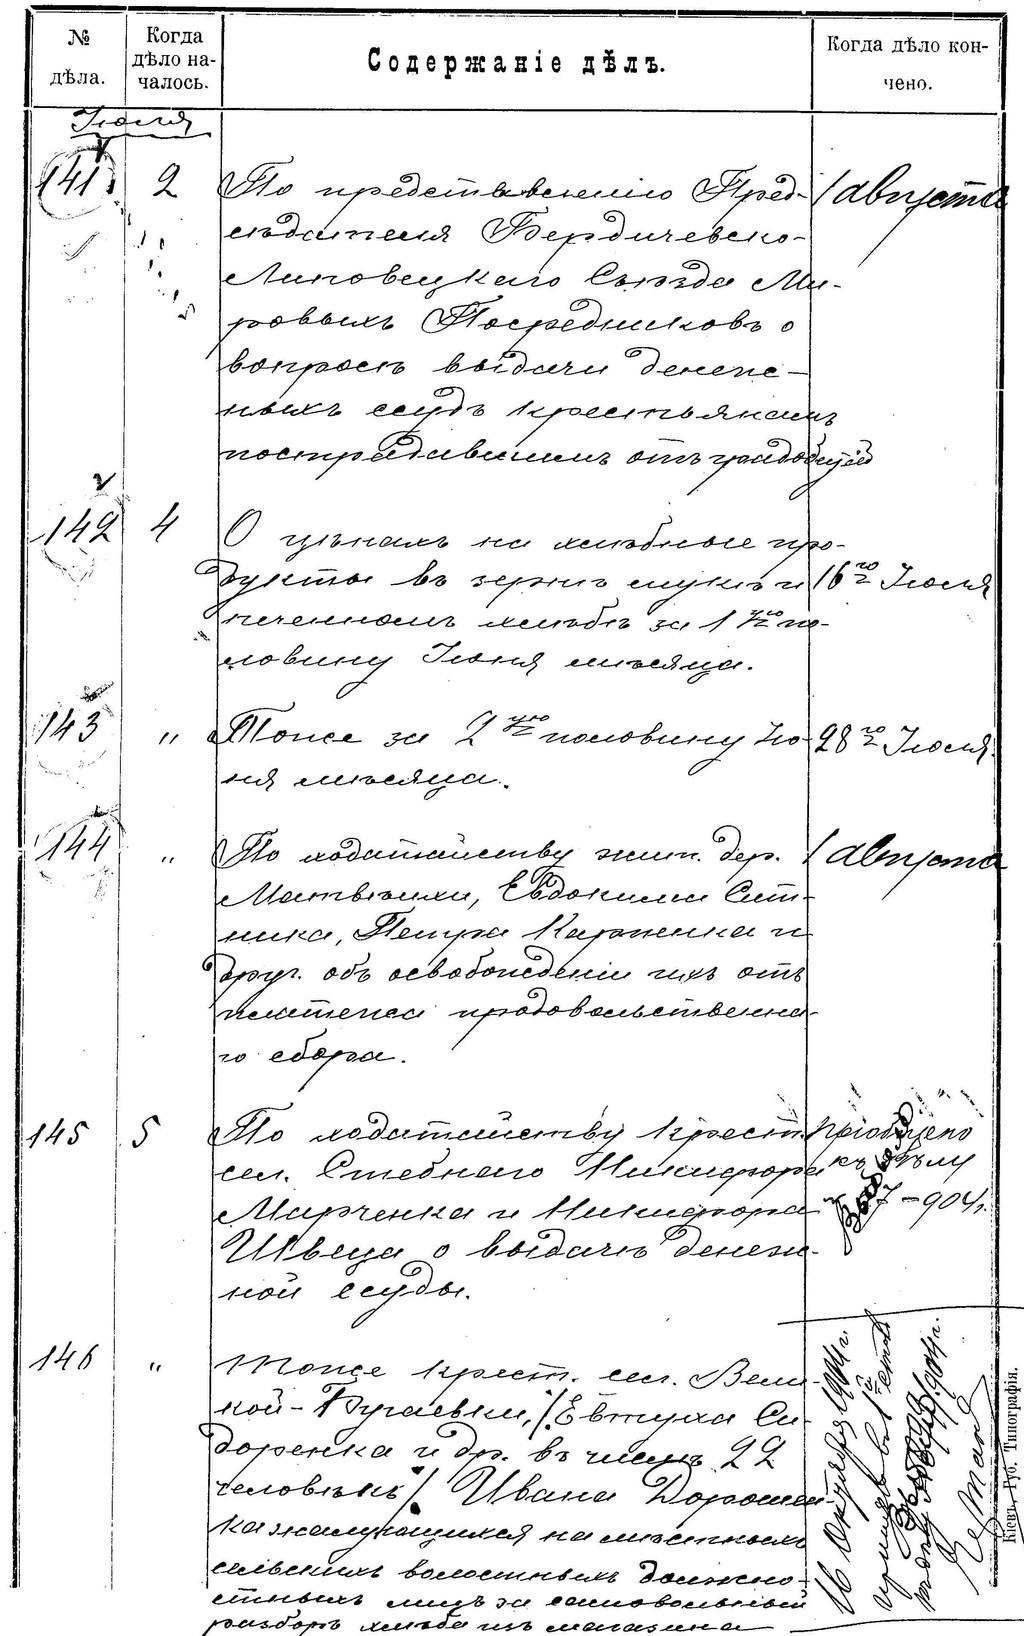 № дѣла.
Когда дѣло на-
чалось.
Содержаніе дѣлъ.
Когда дѣло кон-
чено.
Іюля
141. 2 По представленію Пред- 1 августа
сѣдателя Бердичевско-
Липовецкаго Съѣзда Ми-
ровыхъ Посредниковъ о
вопросѣ выдачи денеж-
ныхъ ссудъ крестьянамъ
пострадавшимъ отъ градобитія
142 4 О цѣнахъ на хлѣбные про-
дукты въ зернѣ мукѣ и 16го Іюля
печенномъ хлѣбѣ за 1ую по-
ловину Іюня мѣсяца.
143 " Тоже за 2ую половину Ію- 28го Іюля
ня мѣсяца.
144 " По ходатайству жит. дер. 1 августа
Матвѣихи, Евдокима Сит-
ника, Петра Карпенка и
друг. объ освобожденіи ихъ отъ
платежа продовольственна-
го сбора.
145 5 По ходатайству крест. Пріобщено
сел. Стебнаго Никифора къ дѣлу
Марченка и Никифора 7-904г.
Швеца о выдачѣ денеж-
ной ссуды.
146 " тоже крест. сел. Вели-
кой-Бугаевки, /Евтуха Си-
доренка и др. въ числѣ 22
человѣкъ/ Ивана Дорошен-
ка жалующихся на мѣстныхъ
сельскихъ волостныхъ должно-
стныхъ лицъ за самовольный
разборъ хлѣба изъ магазина
16 Октября 1904г.
Кіевъ, Губ. Типографія.